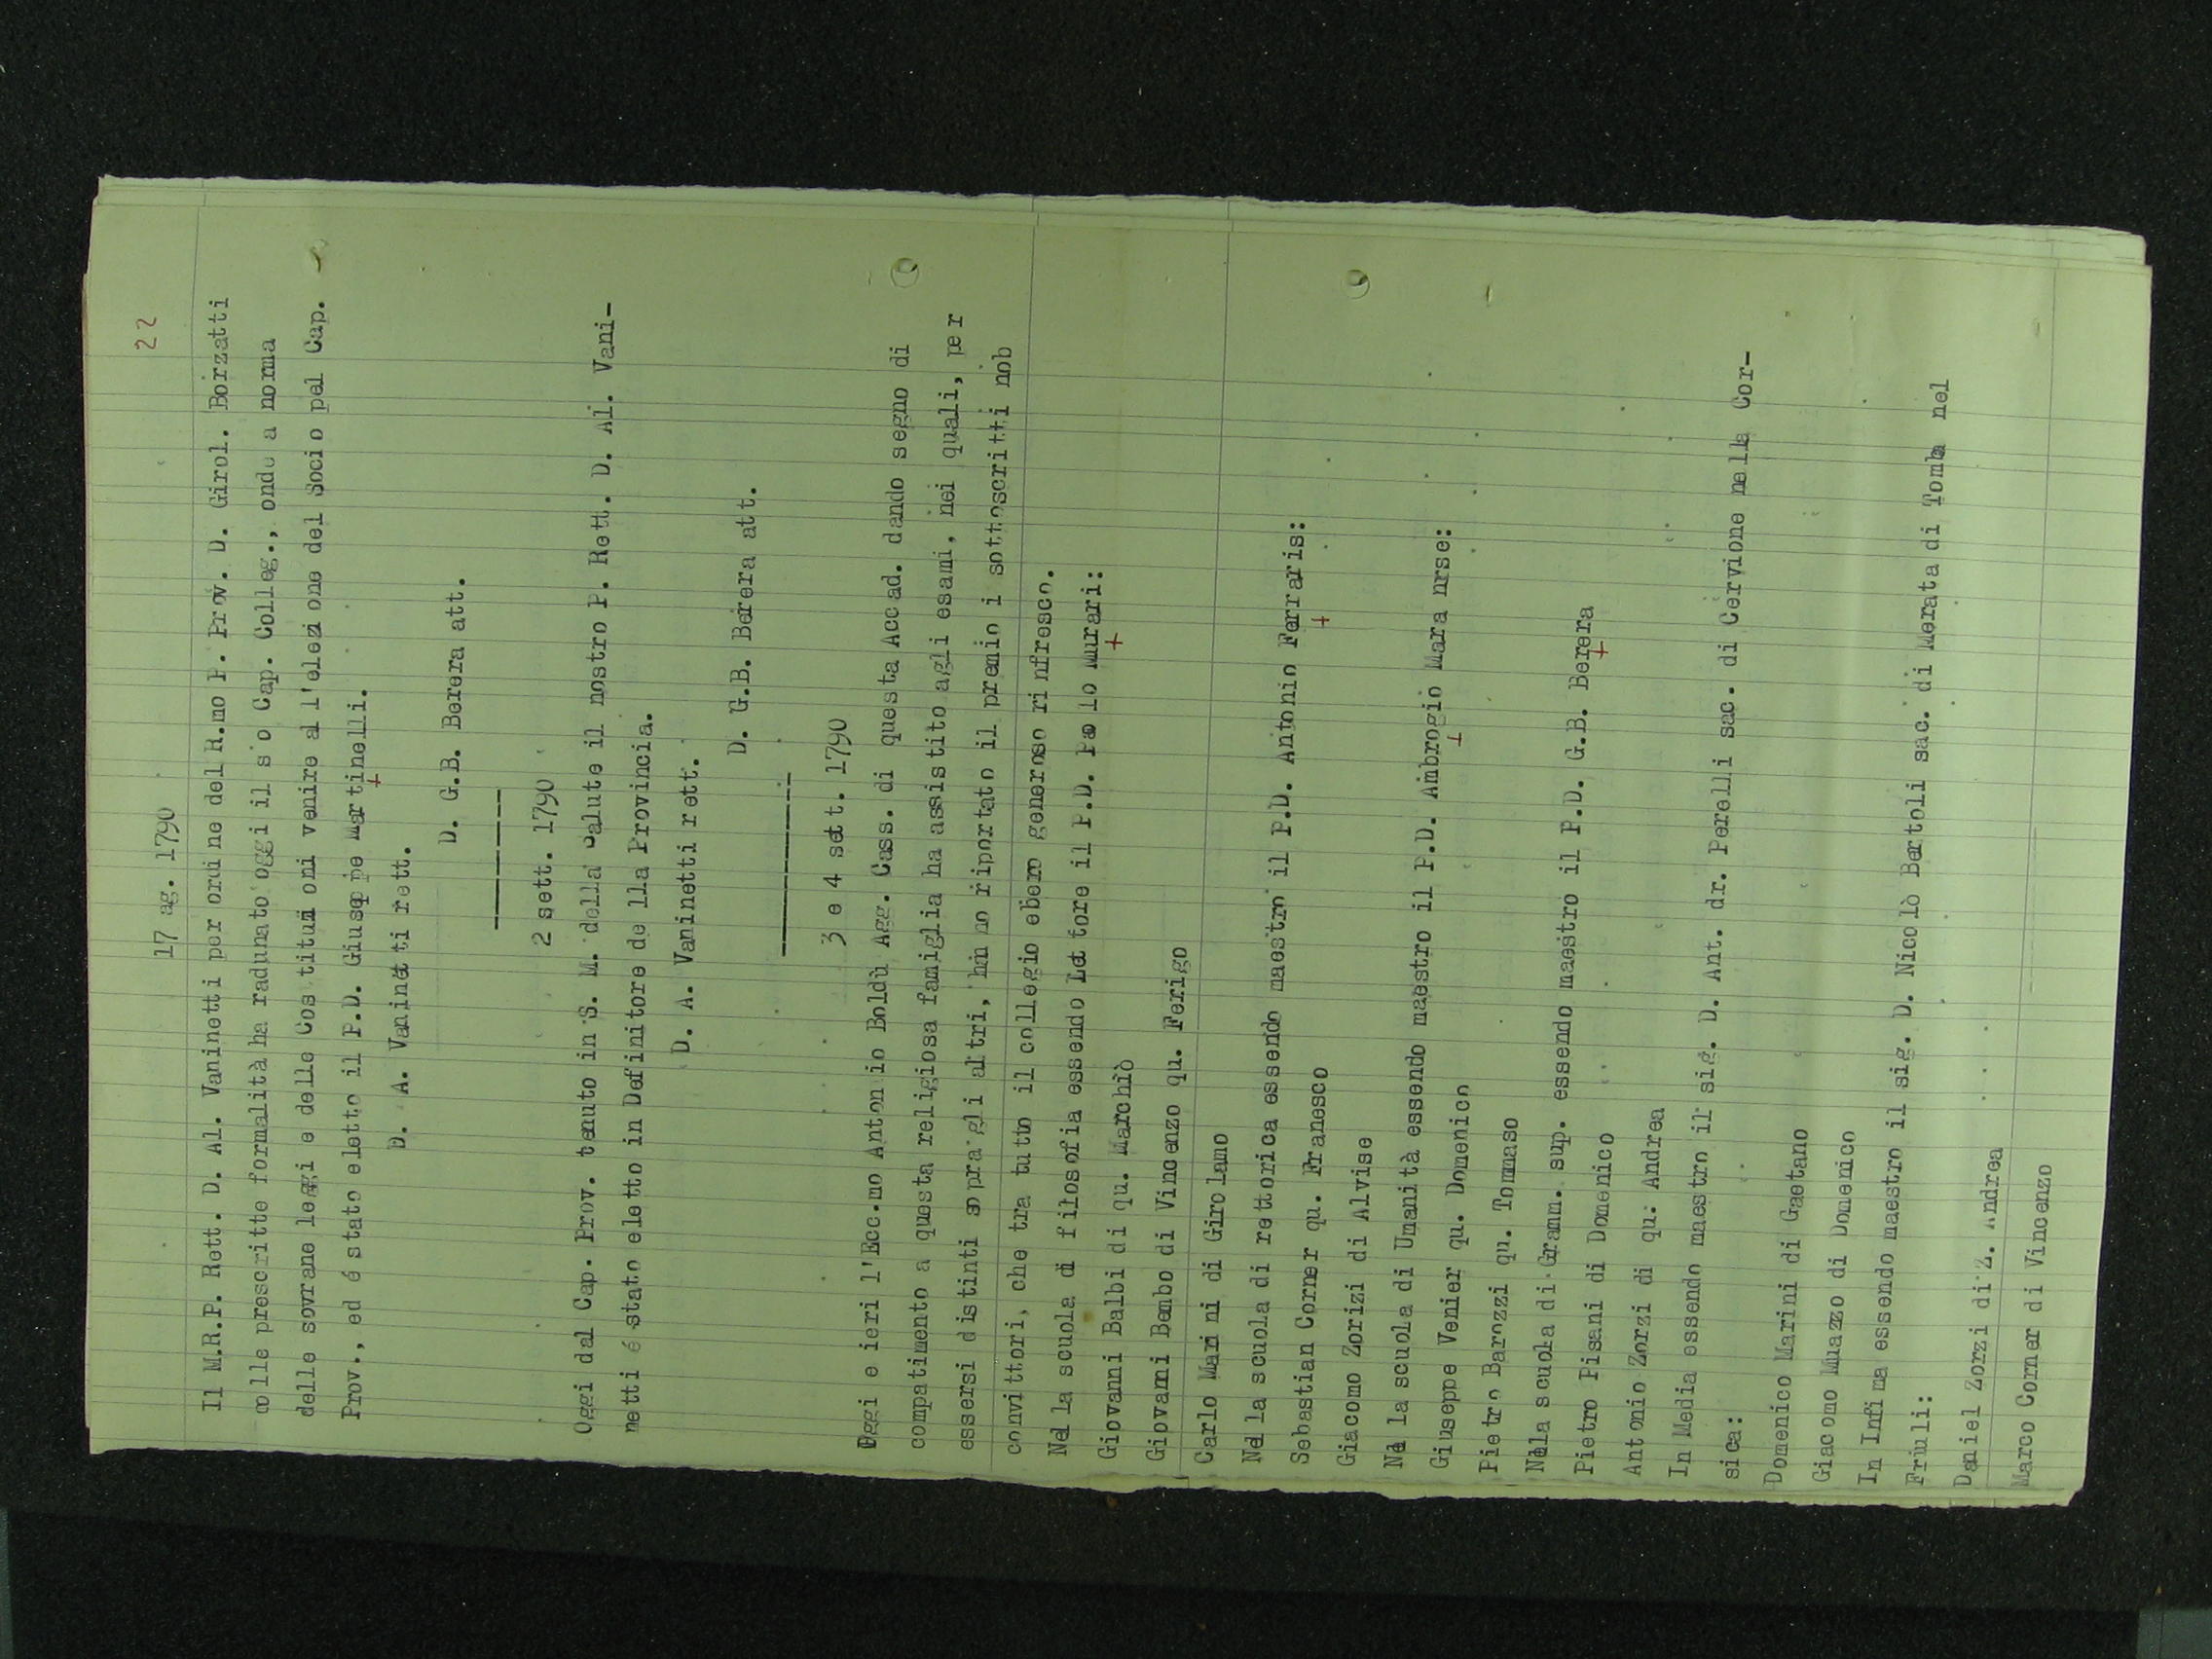 22
17 ag. 1790
Il M.R.P. Rett. D. Al. Vaninetti per ordine del R.mo P. Prov. D. Girol. Borzatti
colle prescritte formalità ha radunato oggi il s o Cap. Colleg., onde a norma
delle sovrane leggi e delle Costituzioni venire al l'elezione del Socio pel Cap.
Prov., ed é stato eletto il P.D. Giuseppe Martinelli.
D. A. Vaninetti rett.
D. G.B. Berera att.
----------
2 sett. 1790
Oggi dal Cap. Prov. tenuto in S. M. della Salute il nostro P. Rett. D. Al. Vani-
netti é stato eletto in Definitore de lla Provincia.
D. A. Vaninetti rett.
D. G.B. Berera att.
-------------
3 e 4 sett. 1790
Oggi e ieri l'Ecc.mo Antonio Boldù Agg. Cass. di questa Accad. dando segno di
compatimento a questa religiosa famiglia ha assistito agli esami, nei quali, per
essersi distinti sopra gli altri, hanno riportato il premio i sottoscritti nob
convittori, che tra tutto il collegio ebero generoso rinfresco.
Nella scuola di filosofia essendo Lettore il P.D. Paolo Murari:
Giovanni Balbi di qu. Marchiò
Giovanni Bembo di Vincenzo qu. Ferigo
Carlo Marini di Girolamo
Nella scuola di rettorica essendo maestro il P.D. Antonio Ferraris:
Sebastian Corner qu. Franesco
Giacomo Zorizi di Alvise
Nella scuola di Umanità essendo maestro il P.D. Ambrogio Mara nrse:
Giuseppe Venier qu. Domenico
Pietro Barozzi qu. Tommaso
Nella scuola di Gramm. sup. essendo maestro il P.D. G.B. Berera
Pietro Pisani di Domenico
Antonio Zorzi di qu. Andrea
In Media essendo maestro il sig. D. Ant. dr. Perelli sac. di Cervione nella Cor-
sica:
Domenico Marini di Gaetano
Giacomo Muazzo di Domenico
In Infima essendo maestro il sig. D. Nicolò Bertoli sac. di Merata di Tomba nel
Friuli:
Daniel Zorzi di Z. Andrea
Marco Corner di Vincenzo